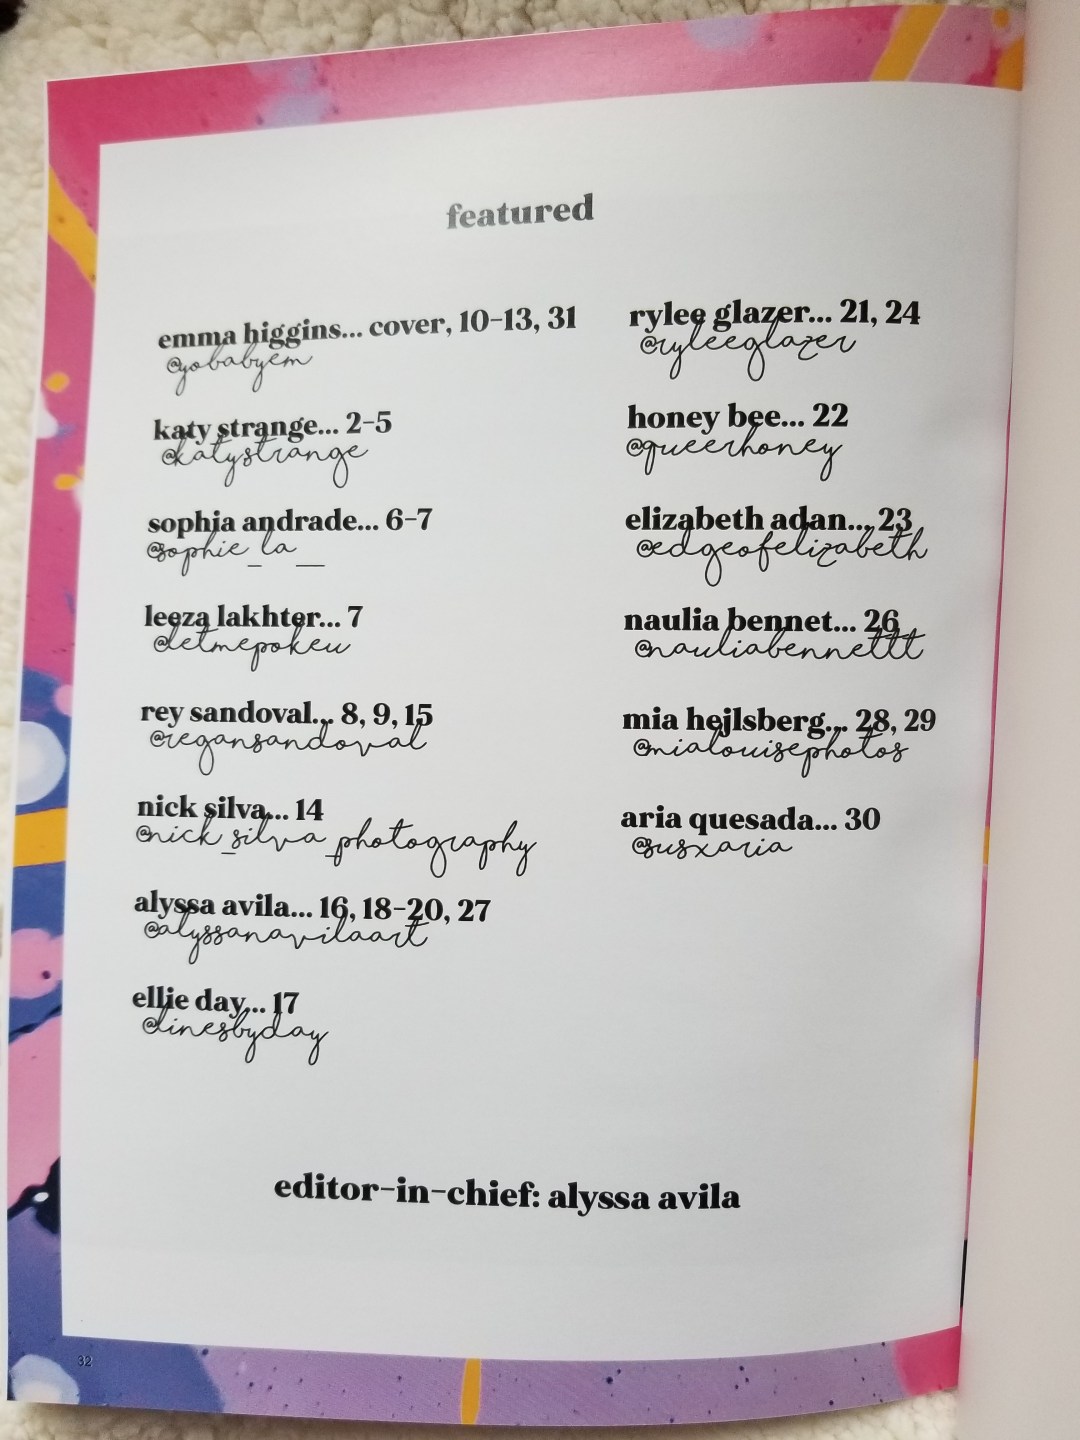 featured
emma higgins... cover, 10-13, 31
@yobabyem
katy strange... 2-5
@katystrange
sophia andrade... 6-7
@sophie_la__
leeza lakhter... 7
@letmepokeu
rey sandoval... 8, 9, 15
@regansandoval
nick silva... 14
@nick_silva_photography
alyssa avila... 16, 18-20, 27
@alyssanavilaart
ellie day... 17
@linesbyday
rylee glazer... 21, 24
@ryleeglazer
honey bee... 22
@queerhoney
elizabeth adan... 23
@edgeofelizabeth
naulia bennet... 26
@nauliabennettt
mia hejlsberg... 28, 29
@mialouisephotos
aria quesada... 30
@susxaria
editor-in-chief: alyssa avila
32